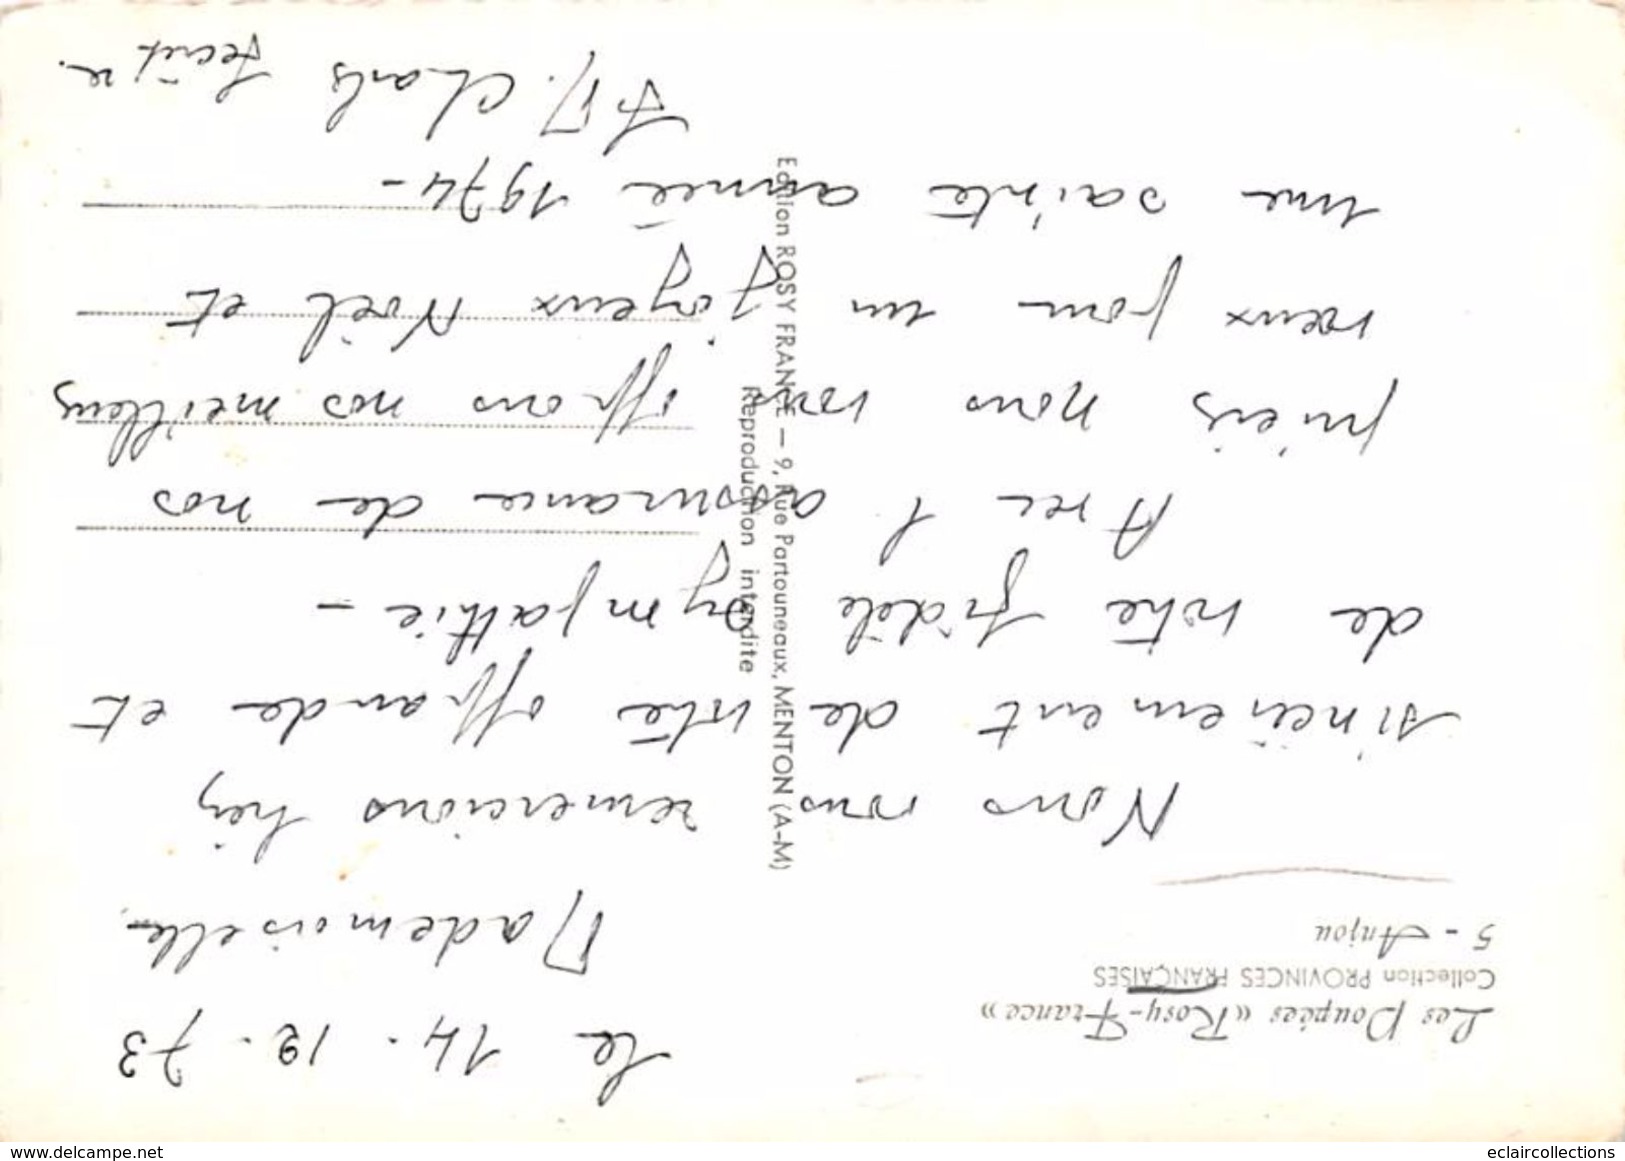 Les Poupées « Rosy-France »
Collection PROVINCES FRANÇAISES
5 - Anjou
le 14. 12. 73
Mademoiselle,
Nous vous remercions très
sincèrement de votre offrande et
de votre fidèle sympathie -
Avec l'assurance de nos
prières nous vous offrons nos meilleurs
vœux pour un joyeux Noël et
une sainte année 1974 -
Charles
Edition ROSY FRANCE — 9, Rue Partouneaux, MENTON (A-M)
Reproduction interdite
www.delcampe.net
eclaircollections